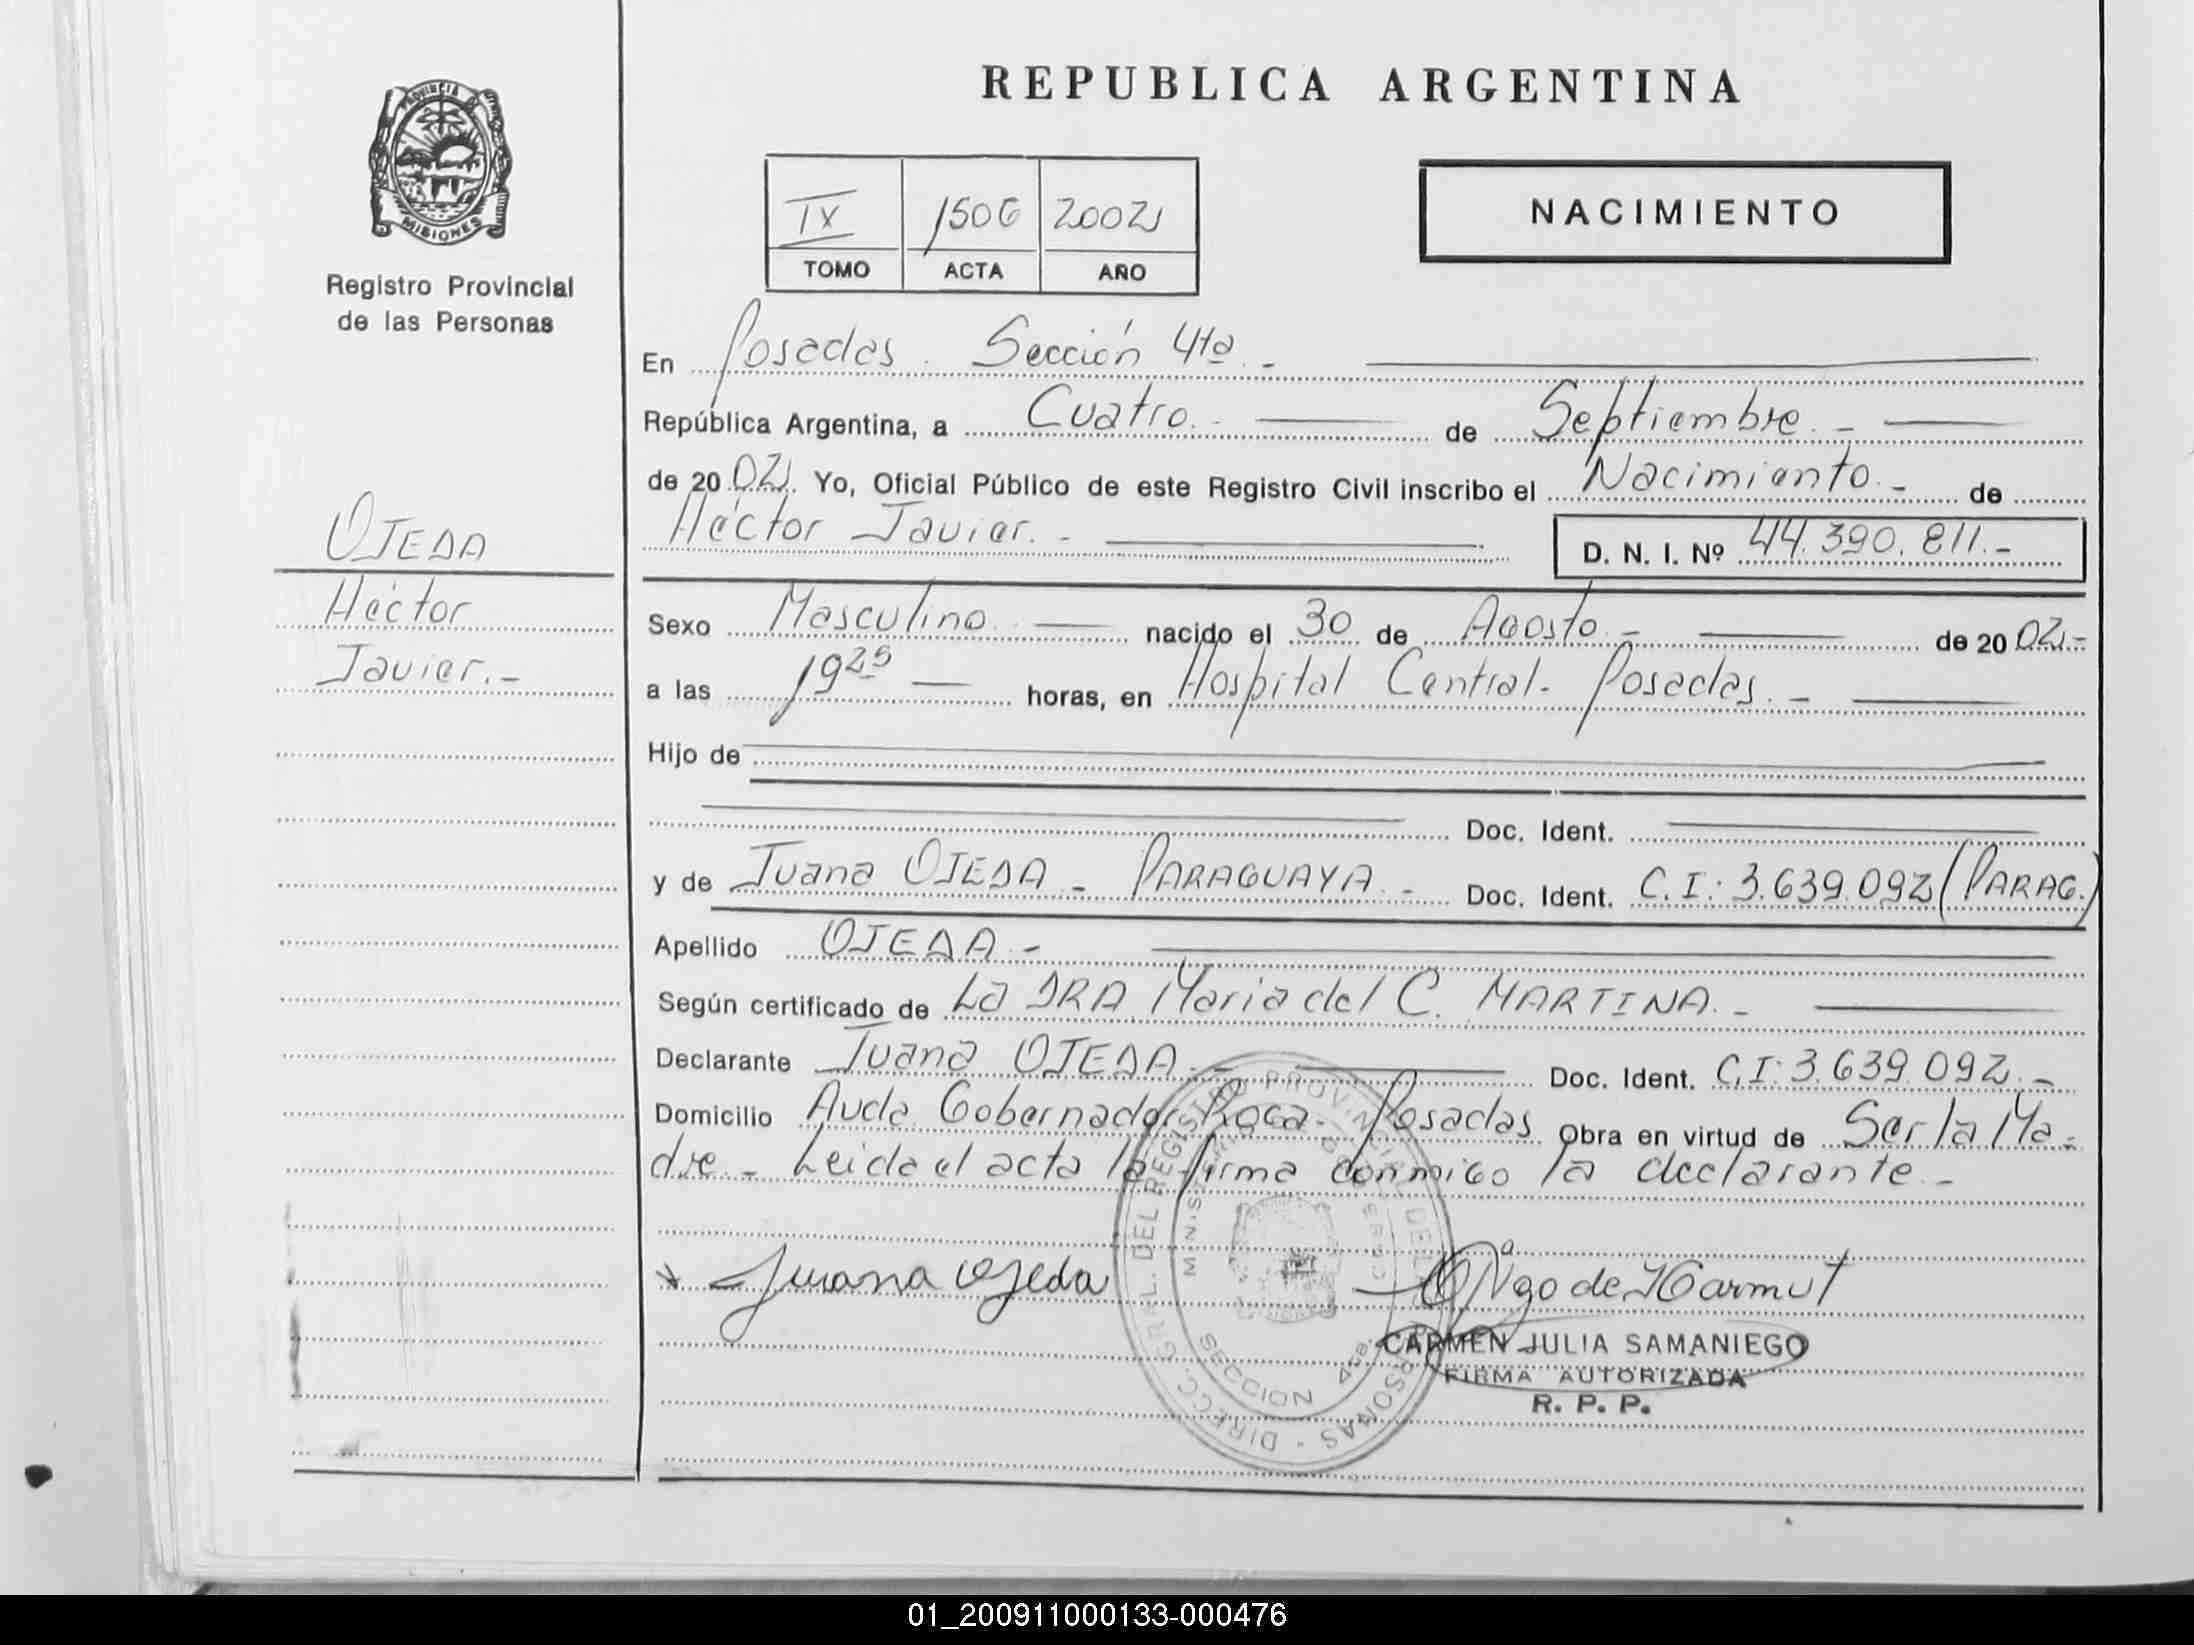 REPUBLICA ARGENTINA
PROVINCIA DE MISIONES
Registro Provincial
de las Personas
IX 1506 2002
TOMO ACTA AÑO
NACIMIENTO
En Posadas. Sección 4ta.-
República Argentina, a Cuatro.- de Septiembre.-
de 2002. Yo, Oficial Público de este Registro Civil inscribo el Nacimiento.- de
Héctor Javier.- D. N. I. Nº 44.390.811.-
OJEDA
Héctor
Javier.-
Sexo Masculino nacido el 30 de Agosto.- de 2002.-
a las 19 25 horas, en Hospital Central- Posadas.-
Hijo de
Doc. Ident.
y de Juana OJEDA - PARAGUAYA.- Doc. Ident. C.I: 3.639.092 (PARAG.)
Apellido OJEDA.-
Según certificado de La DRA Maria del C. MARTINA.-
Declarante Juana OJEDA.- Doc. Ident. C.I: 3.639.092.-
Domicilio Avda. Gobernador Roca- Posadas Obra en virtud de Ser la Ma-
dre.- Leida el acta la firma conmigo la declarante.-
Juana Ojeda
DIRECC. GRAL. DEL REGISTRO PROVINCIAL DE LAS PERSONAS
SECCION 4ta.
CARMEN JULIA SAMANIEGO
FIRMA AUTORIZADA
R. P. P.
01_200911000133-000476